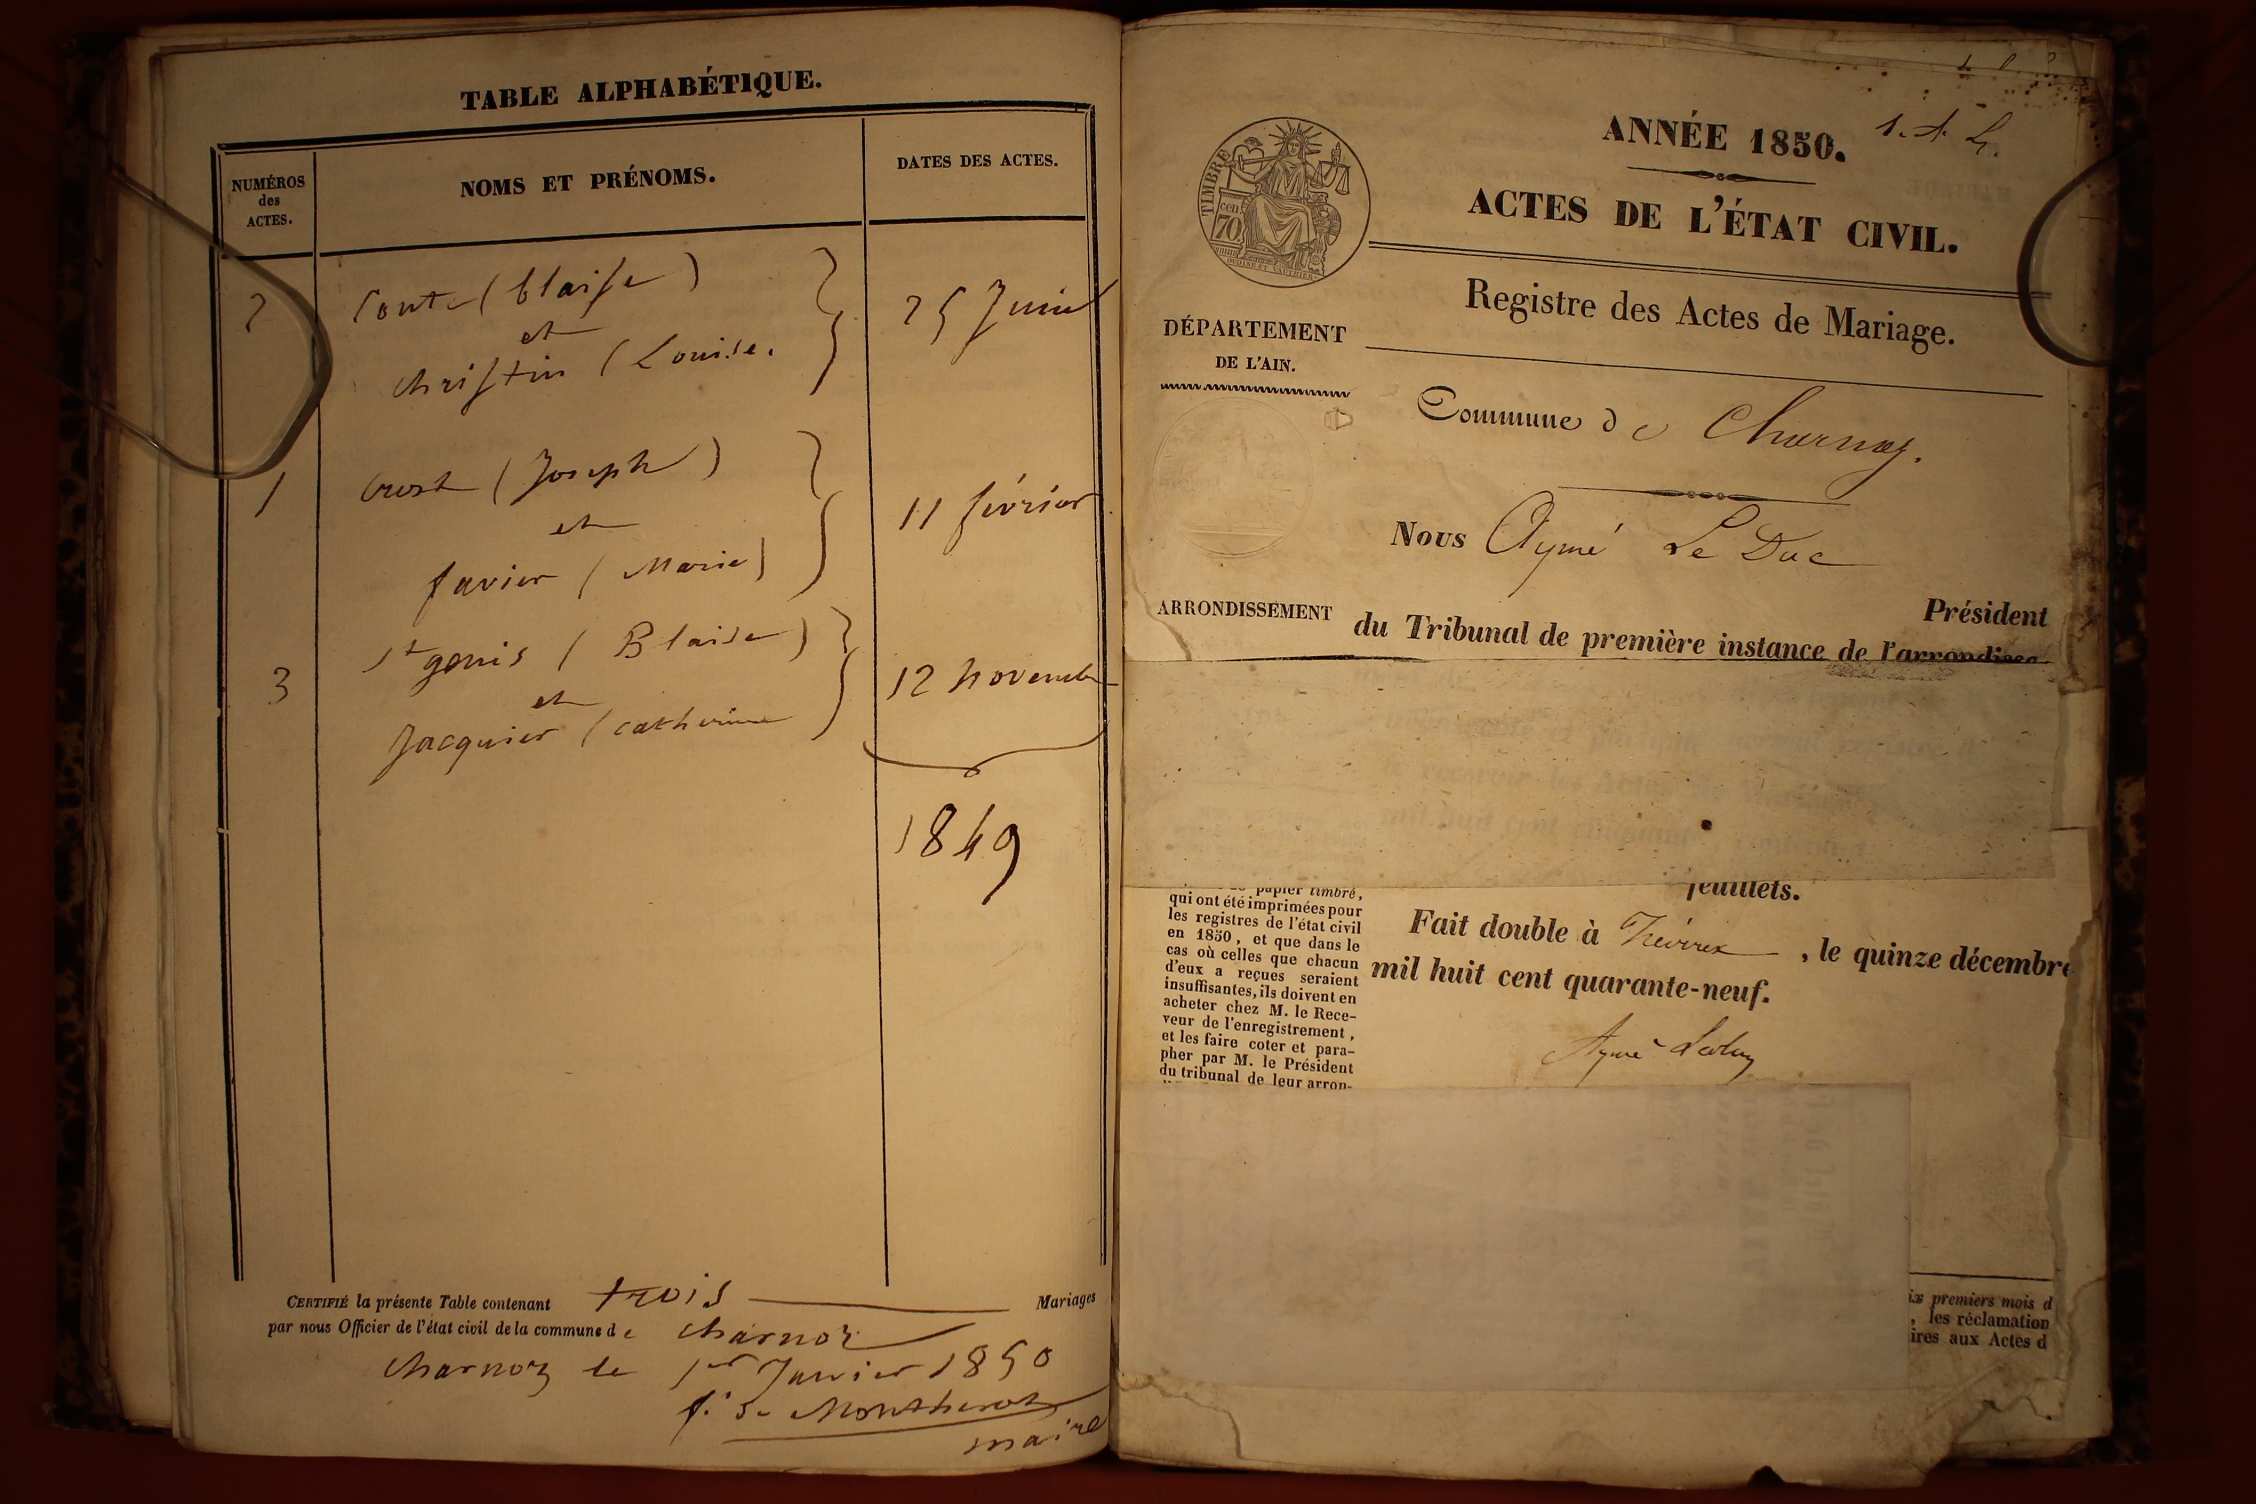 TABLE ALPHABÉTIQUE.
NUMÉROS
des
ACTES.
NOMS ET PRÉNOMS.
DATES DES ACTES.
2
Conte (blaise)
et
christin (Louise.
25 Juin
1
Crost (Joseph)
et
favier (Marie)
11 février
3
St genis (Blaise)
et
Jacquier (catherine
12 novembre
1849
CERTIFIÉ la présente Table contenant trois Mariages
par nous Officier de l'état civil de la commune de charnoz
charnoz le 1er Janvier 1850
f. de Montherot
maire
ANNÉE 1850.
ACTES DE L'ÉTAT CIVIL.
TIMBRE
cen.
70
Registre des Actes de Mariage.
DÉPARTEMENT
DE L'AIN.
Commune de Charnoz.
Nous Aymé Le Duc
Président
ARRONDISSEMENT
du Tribunal de première instance de l'arrondisse
papier timbré,
qui ont été imprimées pour
les registres de l'état civil
en 1850, et que dans le
cas où celles que chacun
d'eux a reçues seraient
insuffisantes, ils doivent en
acheter chez M. le Rece-
veur de l'enregistrement,
et les faire coter et para-
pher par M. le Président
du tribunal de leur arron-
feuillets.
Fait double à Trévoux, le quinze décembre
mil huit cent quarante-neuf.
Aymé Leduc
ix premiers mois d
, les réclamation
ires aux Actes d